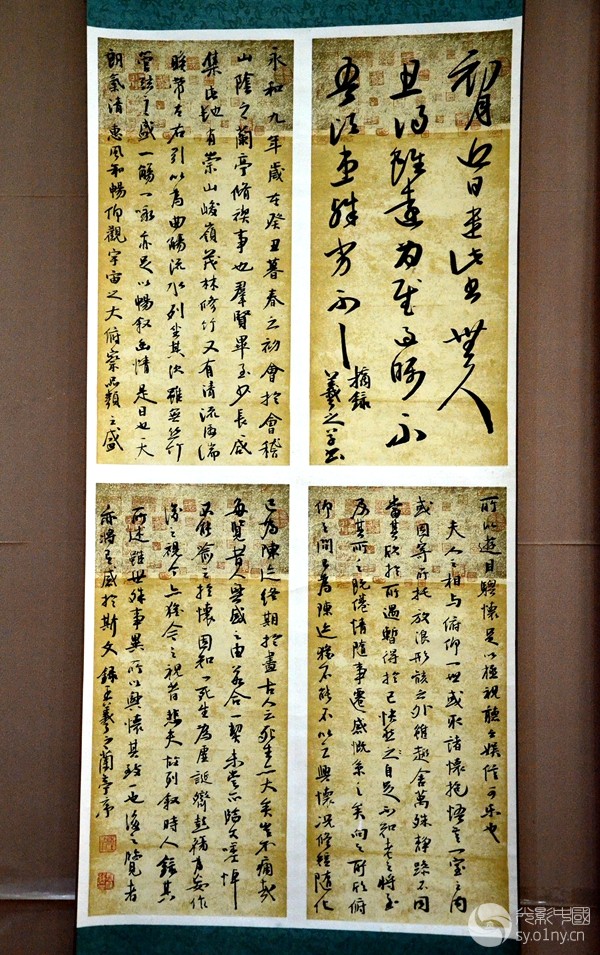 初月日遣此書無人
且得雖遠為慰過囑不
吾諸患殊劣不一一
摘錄
羲之書
永和九年歲在癸丑暮春之初會於會稽
山陰之蘭亭脩禊事也羣賢畢至少長咸
集此地有崇山峻嶺茂林修竹又有清流激湍
暎帶左右引以為曲觴流水列坐其次雖無絲竹
管弦之盛一觴一詠亦足以暢敘幽情是日也天
朗氣清惠風和暢仰觀宇宙之大俯察品類之盛
所以遊目騁懷足以極視聽之娛信可樂也
夫人之相與俯仰一世或取諸懷抱悟言一室之內
或因寄所托放浪形骸之外雖趣舍萬殊靜躁不同
當其欣於所遇暫得於己快然自足不知老之將至
及其所之既倦情隨事遷感慨系之矣向之所欣俯
仰之間已為陳迹猶不能不以之興懷況修短隨化
已為陳迹終期於盡古人云死生亦大矣豈不痛哉
每覽昔人興感之由若合一契未嘗不臨文嗟悼
不能喻之於懷固知一死生為虛誕齊彭殤為妄作
後之視今亦猶今之視昔悲夫故列敘時人錄其
所述雖世殊事異所以興懷其致一也後之覽者
亦將有感於斯文 錄王羲之蘭亭序
光影中國
sy.o1ny.cn